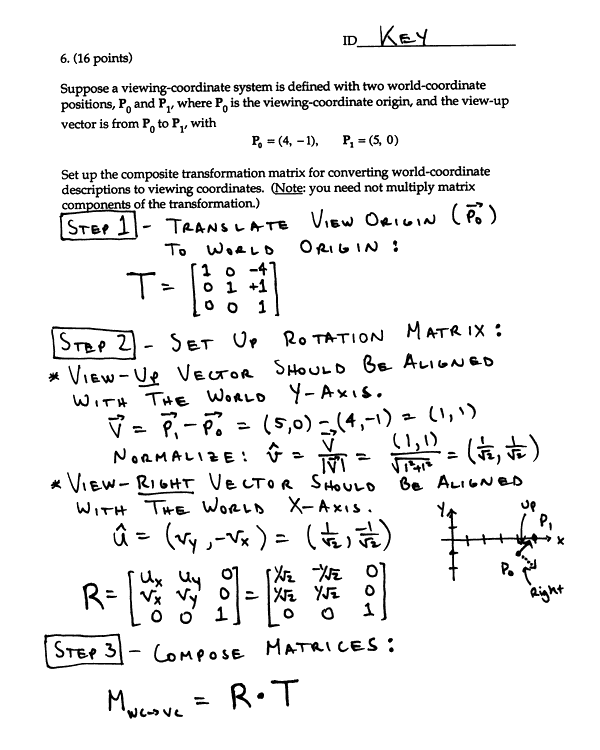 ID KEY
6. (16 points)
Suppose a viewing-coordinate system is defined with two world-coordinate
positions, P₀ and P₁, where P₀ is the viewing-coordinate origin, and the view-up
vector is from P₀ to P₁, with
P₀ = (4, – 1), P₁ = (5, 0)
Set up the composite transformation matrix for converting world-coordinate
descriptions to viewing coordinates. (Note: you need not multiply matrix
components of the transformation.)
STEP 1 - TRANSLATE VIEW ORIGIN (P⃗₀)
TO WORLD ORIGIN :
T = [1 0 -4
0 1 +1
0 0 1]
STEP 2 - SET UP ROTATION MATRIX :
* VIEW-UP VECTOR SHOULD BE ALIGNED
WITH THE WORLD Y-AXIS.
V⃗ = P⃗₁ - P⃗₀ = (5,0) - (4,-1) = (1,1)
NORMALIZE: v̂ = V⃗/|V⃗| = (1,1)/√(1²+1²) = (1/√2, 1/√2)
* VIEW-RIGHT VECTOR SHOULD BE ALIGNED
WITH THE WORLD X-AXIS.
û = (vy, -vx) = (1/√2, -1/√2)
Y
UP
P₁
x
P₀
Right
R = [ux uy 0 = [1/√2 -1/√2 0
vx vy 0 1/√2 1/√2 0
0 0 1] 0 0 1]
STEP 3 - COMPOSE MATRICES :
M WC→VC = R · T